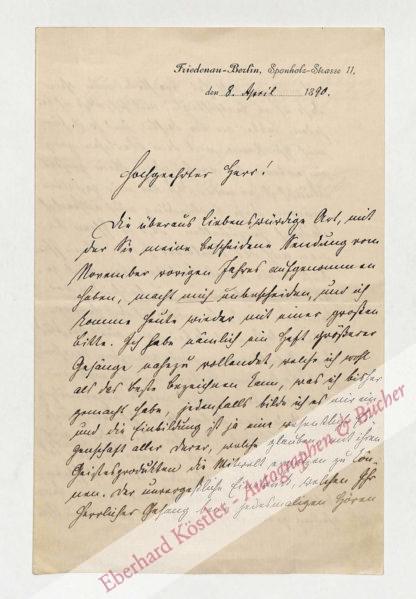 Friedenau-Berlin, Sponholz-Strasse 11,
den 8. April 1890.
Hochgeehrter Herr!
Die überaus liebenswürdige Art, mit
der Sie meine bescheidene Sendung vom
November vorigen Jahres aufgenommen
haben, macht mich unbescheiden, und ich
komme heute wieder mit einer großen
Bitte. Ich habe nämlich ein Heft größerer
Gesänge nahezu vollendet, welche ich wohl
als das beste bezeichnen kann, was ich bisher
gemacht habe, jedenfalls bilde ich es mir ein
und die Einbildung ist ja eine wesentliche Ei-
genschaft aller derer, welche glauben mit ihren
Geistesprodukten die Mitwelt zu kön-
nen. Der unvergeßliche Eindruck, welchen Ihr
herrlicher Gesang beim jedesmaligen Hören
Eberhard Köstler - Autographen & Bücher